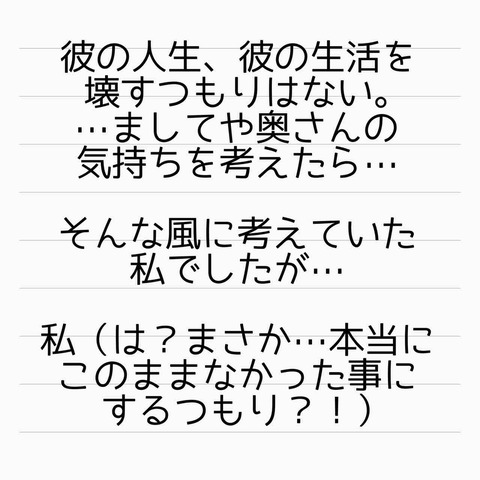 彼の人生、彼の生活を
壊すつもりはない。
…ましてや奥さんの
気持ちを考えたら…
そんな風に考えていた
私でしたが…
私（は？まさか…本当に
このままなかった事に
するつもり？！）